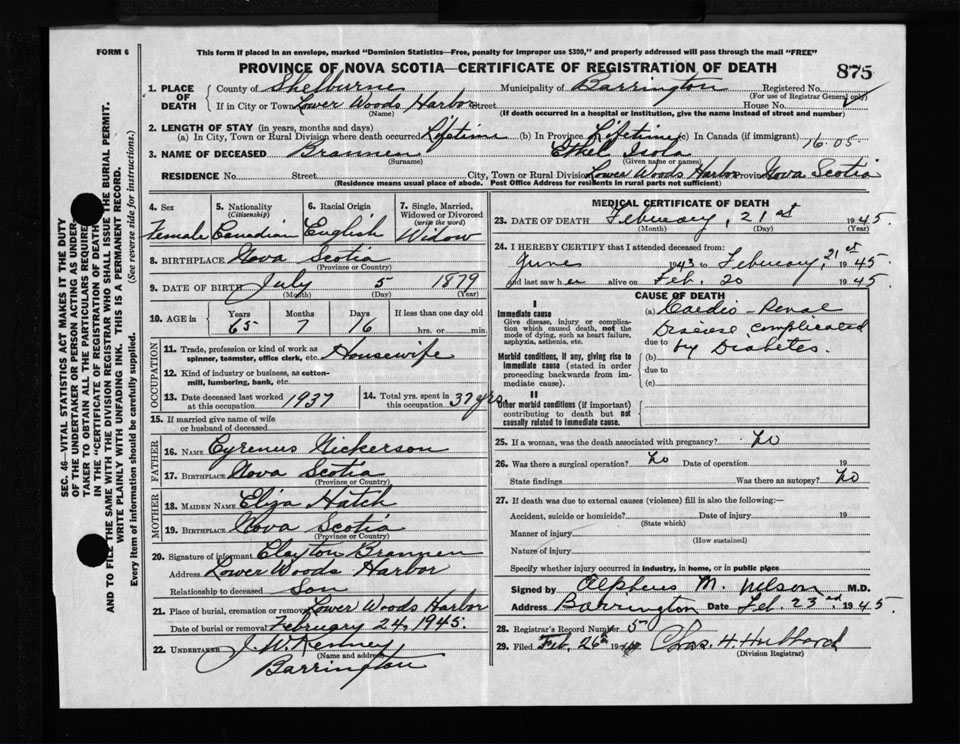 FORM 6
This form if placed in an envelope, marked "Dominion Statistics—Free, penalty for improper use $300," and properly addressed will pass through the mail "FREE"
PROVINCE OF NOVA SCOTIA—CERTIFICATE OF REGISTRATION OF DEATH
875
1. PLACE OF DEATH
County of Shelburne Municipality of Barrington Registered No.
(For use of Registrar General only)
If in City or Town Lower Woods Harbor Street House No.
(Name) (If death occurred in a hospital or institution, give the name instead of street and number)
2. LENGTH OF STAY (in years, months and days)
(a) In City, Town or Rural Division where death occurred Lifetime (b) In Province Lifetime (c) In Canada (if immigrant)
16.05.
3. NAME OF DECEASED Brannen Ethel Isola
(Surname) (Given name or names)
RESIDENCE No. Street City, Town or Rural Division Lower Woods Harbor Province Nova Scotia
(Residence means usual place of abode. Post Office Address for residents in rural parts not sufficient)
4. Sex
Female
5. Nationality
(Citizenship)
Canadian
6. Racial Origin
English
7. Single, Married, Widowed or Divorced
(write the word)
Widow
8. BIRTHPLACE Nova Scotia
(Province or Country)
9. DATE OF BIRTH July 5 1879
(Month) (Day) (Year)
10. AGE in
Years Months Days If less than one day old
65 7 16 hrs. or min.
OCCUPATION
11. Trade, profession or kind of work as spinner, teamster, office clerk, etc. Housewife
12. Kind of industry or business, as cotton-mill, lumbering, bank, etc.
13. Date deceased last worked at this occupation 1937
14. Total yrs. spent in this occupation 37 yrs
15. If married give name of wife or husband of deceased
FATHER
16. NAME Cyrenus Nickerson
17. BIRTHPLACE Nova Scotia
(Province or Country)
MOTHER
18. MAIDEN NAME Eliza Hatch
19. BIRTHPLACE Nova Scotia
(Province or Country)
20. Signature of informant Clayton Brannen
Address Lower Woods Harbor
Relationship to deceased Son
21. Place of burial, cremation or removal Lower Woods Harbor
Date of burial or removal February 24, 1945.
22. UNDERTAKER J. W. Kenney
(Name and address)
Barrington
MEDICAL CERTIFICATE OF DEATH
23. DATE OF DEATH February, 21st 1945
(Month) (Day) (Year)
24. I HEREBY CERTIFY that I attended deceased from:
June 1943 to February, 21st 1945.
and last saw her alive on Feb. 20 1945.
CAUSE OF DEATH
I
Immediate cause
Give disease, injury or complication which caused death, not the mode of dying, such as heart failure, asphyxia, asthenia, etc.
Morbid conditions, if any, giving rise to immediate cause (stated in order proceeding backwards from immediate cause).
II
Other morbid conditions (if important) contributing to death but not causally related to immediate cause.
(a) Cardio-Renal
Disease complicated
due to by Diabetes.
(b)
due to
(c)
25. If a woman, was the death associated with pregnancy? No
26. Was there a surgical operation? No Date of operation 19
State findings Was there an autopsy? No
27. If death was due to external causes (violence) fill in also the following:—
Accident, suicide or homicide? Date of injury 19
(State which)
Manner of injury
(How sustained)
Nature of injury
Specify whether injury occurred in industry, in home, or in public place
Signed by Alpheus M. Wilson M.D.
Address Barrington Date Feb. 23rd. 1945.
28. Registrar's Record Number 5
29. Filed Feb. 26th 19 Chas. H. Hubbard
(Division Registrar)
SEC. 46—VITAL STATISTICS ACT MAKES IT THE DUTY
OF THE UNDERTAKER OR PERSON ACTING AS UNDER-
TAKER TO OBTAIN ALL THE PARTICULARS REQUIRED
IN THE "CERTIFICATE OF REGISTRATION OF DEATH"
AND TO FILE THE SAME WITH THE DIVISION REGISTRAR WHO SHALL ISSUE THE BURIAL PERMIT.
WRITE PLAINLY WITH UNFADING INK. THIS IS A PERMANENT RECORD.
Every item of information should be carefully supplied. (See reverse side for instructions.)